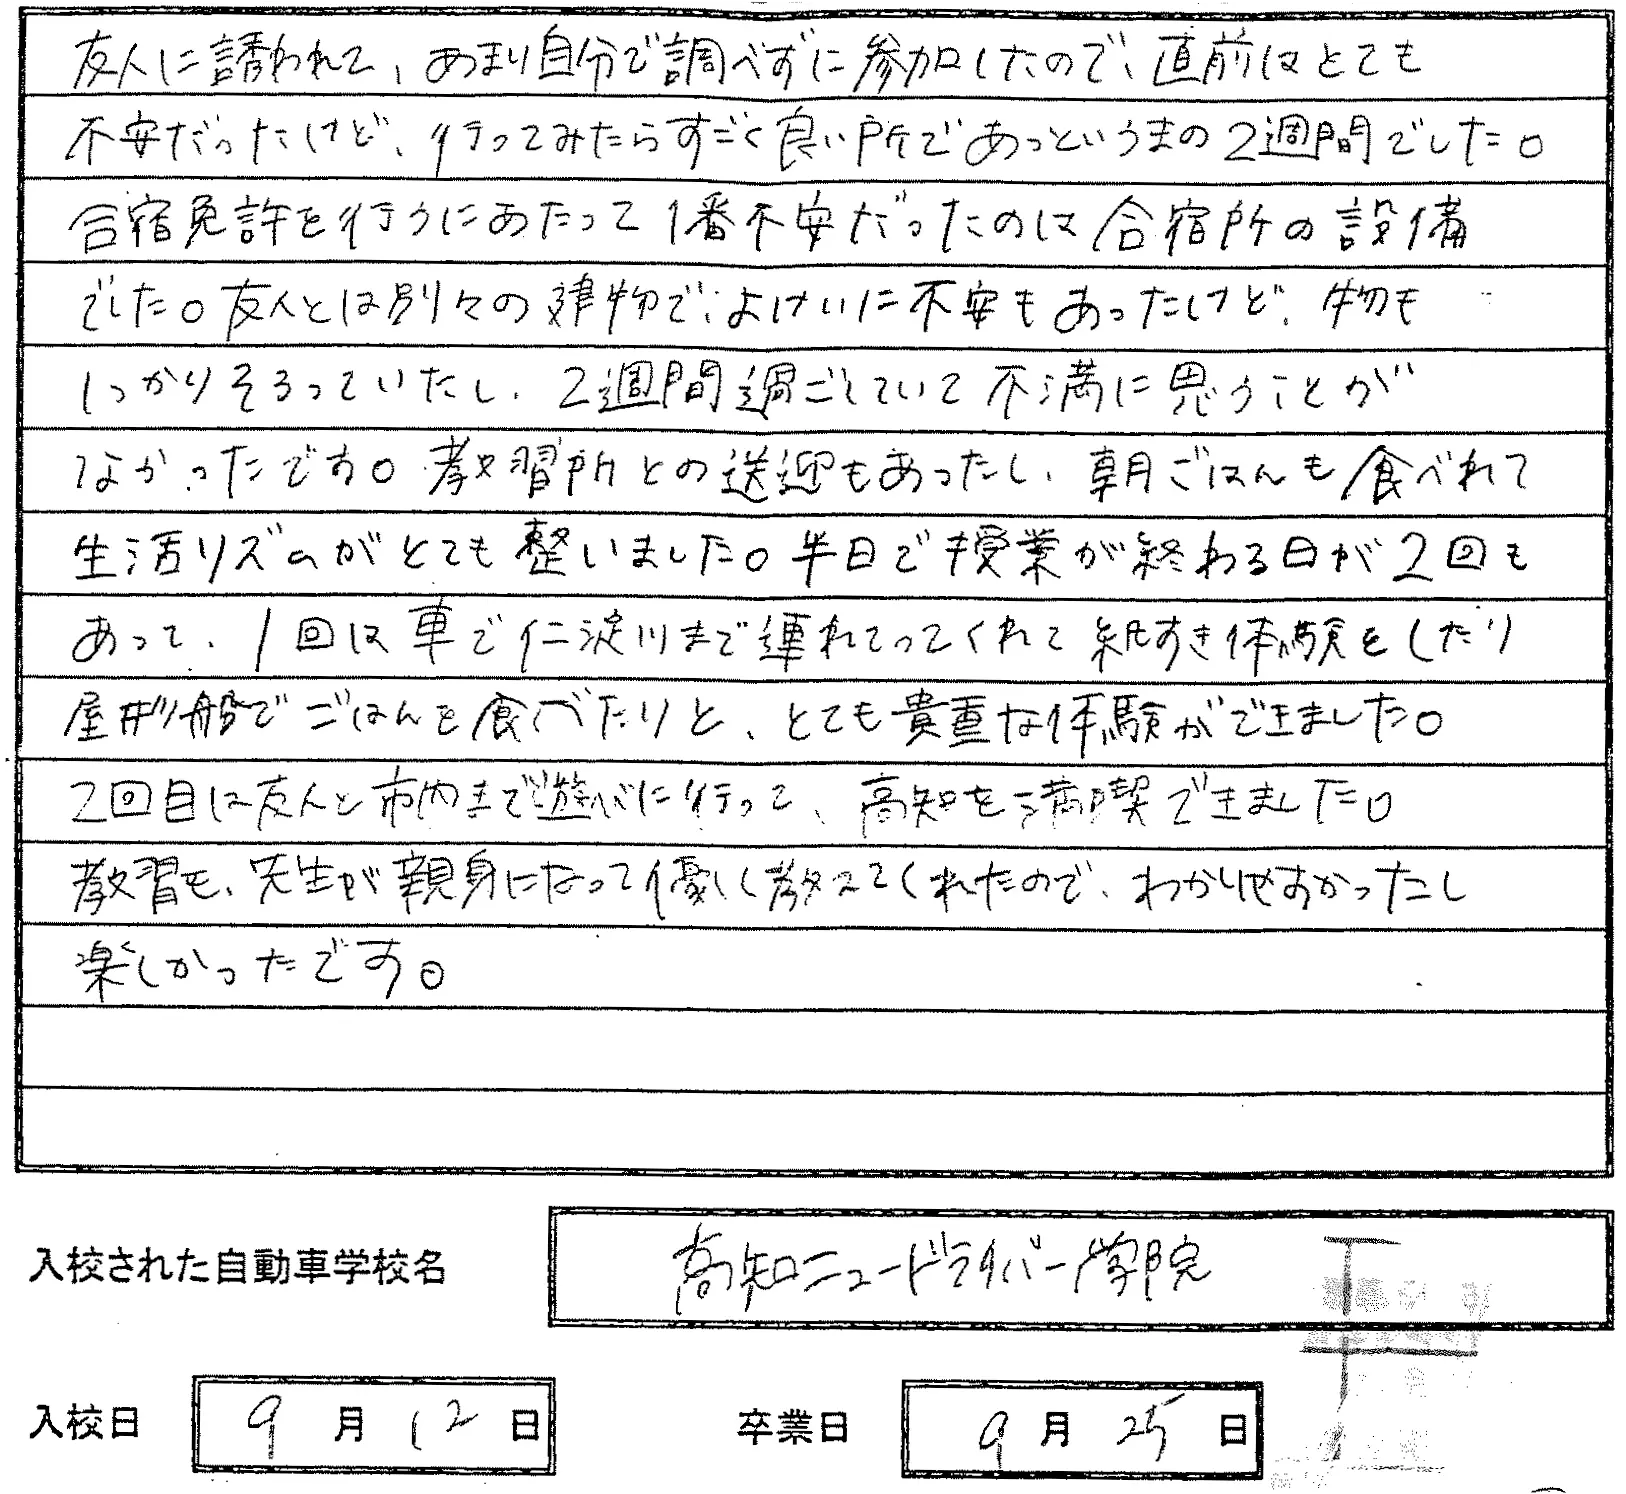 友人に誘われて、あまり自分で調べずに参加したので、直前はとても
不安だったけど、行ってみたらすごく良い所であっというまの2週間でした。
合宿免許を行うにあたって1番不安だったのは合宿所の設備
でした。友人とは別々の建物で、よけいに不安もあったけど、物も
しっかりそろっていたし、2週間過ごしていて不満に思うことが
なかったです。教習所との送迎もあったし、朝ごはんも食べれて
生活リズムがとても整いました。半日で授業が終わる日が2回も
あって、1回は車で仁淀川まで連れてってくれて紙すき体験をしたり
屋形船でごはんを食べたりと、とても貴重な体験ができました。
2回目は友人と市内まで遊べに行って、高知を満喫できました。
教習も、先生が親身になって優しく教えてくれたので、わかりやすかったし
楽しかったです。
入校された自動車学校名 高知ニュードライバー学院
入校日 9月12日 卒業日 9月25日